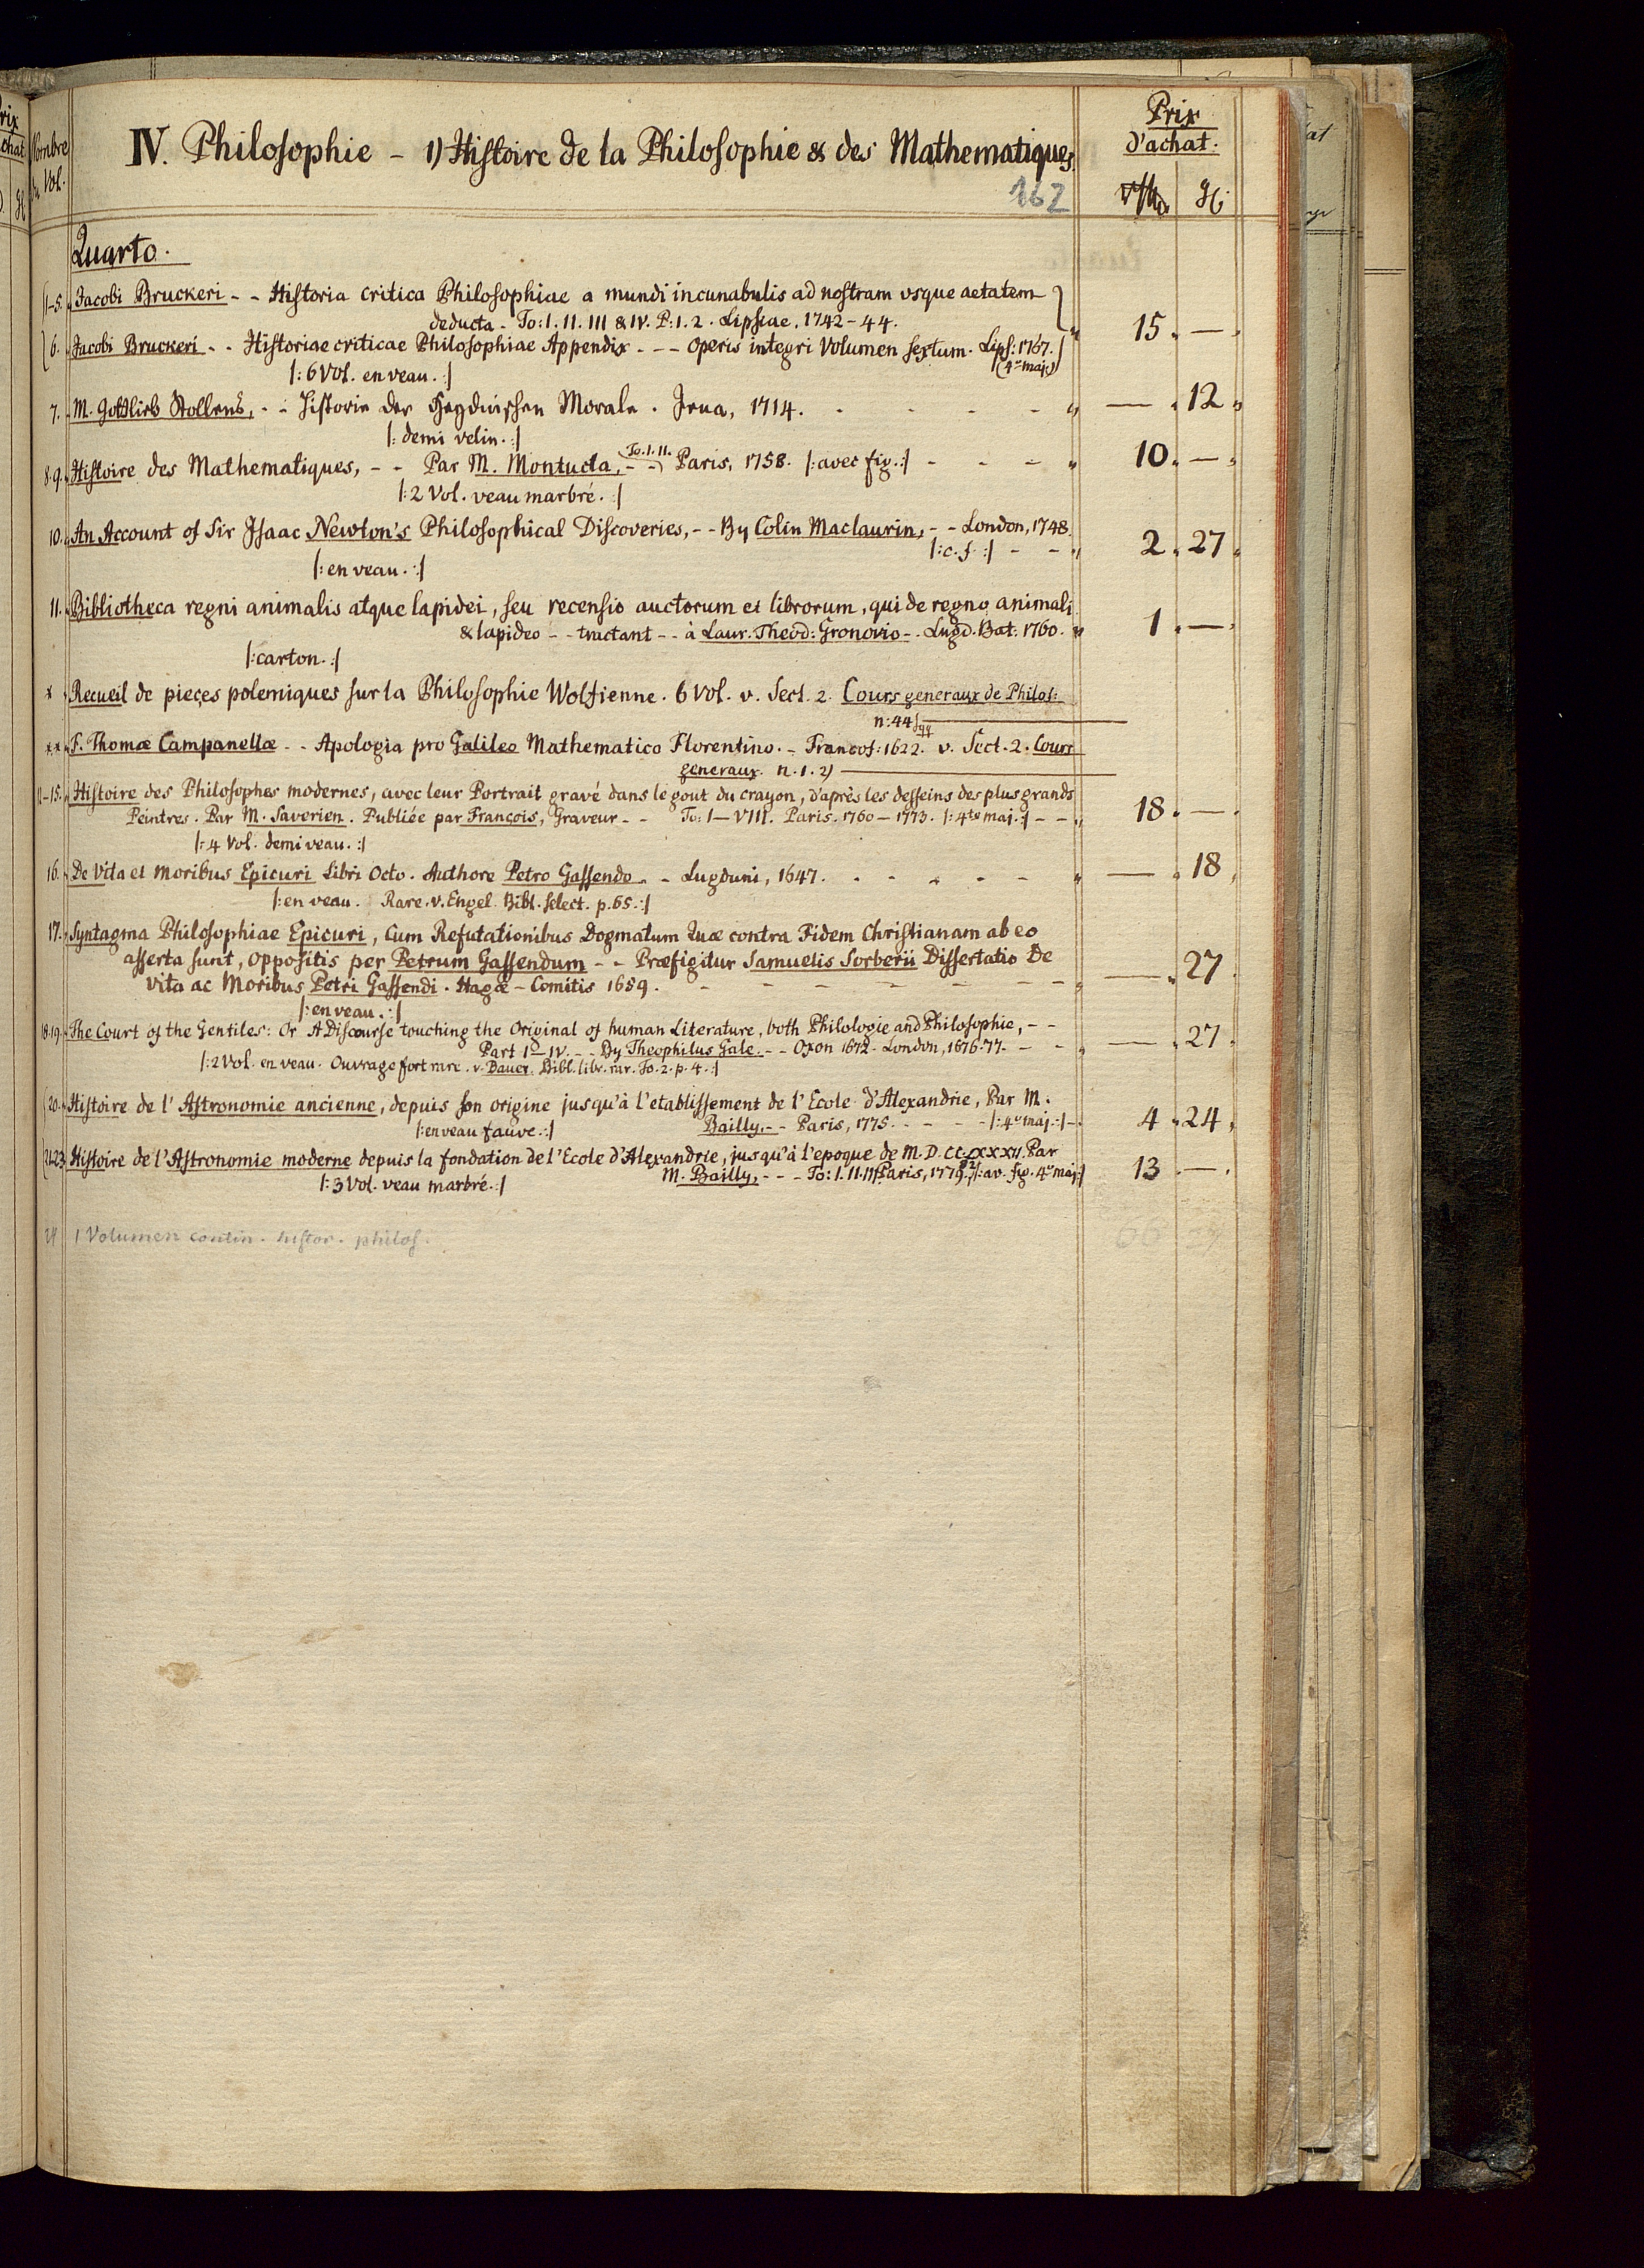 Nombre
du Vol.
IV. Philosophie - 1) Histoire de la Philosophie & des Mathematiques.
162
Prix
d'achat.
Quarto.
1-5. Jacobi Bruckeri - - Historia critica Philosophiae a mundi incunabulis ad nostram vsque aetatem
deducta - To: I. II. III & IV. P: 1. 2. Lipsiae, 1742-44.
6. Jacobi Bruckeri - - Historiae criticae Philosophiae Appendix - - - Operis integri Volumen sextum. Lips: 1767. 15. —
(4º maj.)
|: 6 Vol. en veau. :|
7. M. Gottlieb Stollens, - - Historie der Heydnischen Morale. Jena, 1714. — 12
|: demi velin. :|
8.9. Histoire des Mathematiques, - - Par M. Montucla, - - To. I. II. Paris, 1758. |: avec fig. :| 10. —
|: 2 Vol. veau marbré. :|
10. An Account of Sir Isaac Newton's Philosophical Discoveries, - - By Colin Maclaurin, - - London, 1748.
|: c. f. :| 2. 27
|: en veau. :|
11. Bibliotheca regni animalis atque lapidei, seu recensio auctorum et librorum, qui de regno animali
& lapideo - - tractant - - à Laur. Theod: Gronovio - . Lugd. Bat: 1760. 1. —
|: carton. :|
* Recueil de pieces polemiques sur la Philosophie Wolfienne. 6 Vol. v. Sect. 2. Cours generaux de Philos:
n: 44 sqq
** F. Thomæ Campanellæ - - Apologia pro Galileo Mathematico Florentino. - Francof: 1622. v. Sect. 2. Cours
generaux. n. 1. 2)
12-15. Histoire des Philosophes modernes, avec leur Portrait gravé dans le gout du crayon, d'après les desseins des plus grands
Peintres. Par M. Saverien. Publiée par François, Graveur - - To: I — VIII. Paris. 1760 — 1773. |: 4to maj. :| - - 18. —
|: 4 Vol. demi veau. :|
16. De Vita et Moribus Epicuri Libri Octo. Authore Petro Gassendo - - Lugduni, 1647. — 18
|: en veau. Rare. v. Engel. Bibl. select. p. 65. :|
17. Syntagma Philosophiae Epicuri, Cum Refutationibus Dogmatum Quæ contra Fidem Christianam ab eo
asserta sunt, oppositis per Petrum Gassendum - - Præfigitur Samuelis Sorberii Dissertatio De
Vita ac Moribus Petri Gassendi. Hagæ-Comitis 1659. — 27
|: en veau. :|
18.19. The Court of the Gentiles: Or A Discourse touching the Original of human Literature, both Philologie and Philosophie, - -
Part I - IV. - - By Theophilus Gale. - - Oxon 1672. London, 1676.77. — 27.
|: 2 Vol. en veau. Ouvrage fort rare. v. Bauer. Bibl. libr. rar. To. 2. p. 4. :|
20. Histoire de l'Astronomie ancienne, depuis son origine jusqu'à l'etablissement de l'Ecole d'Alexandrie, Par M.
Bailly. - - Paris, 1775. - - - |: 4º maj. :| 4. 24
|: en veau fauve. :|
21-23. Histoire de l'Astronomie moderne depuis la fondation de l'Ecole d'Alexandrie, jusqu'à l'epoque de M.D.CCLXXXII. Par
M. Bailly, - - - To: I. II. III Paris, 1779.82 |: av. fig. 4º maj: :| 13 —
|: 3 Vol. veau marbré. :|
24 1 Volumen contin. histor. philos.
66